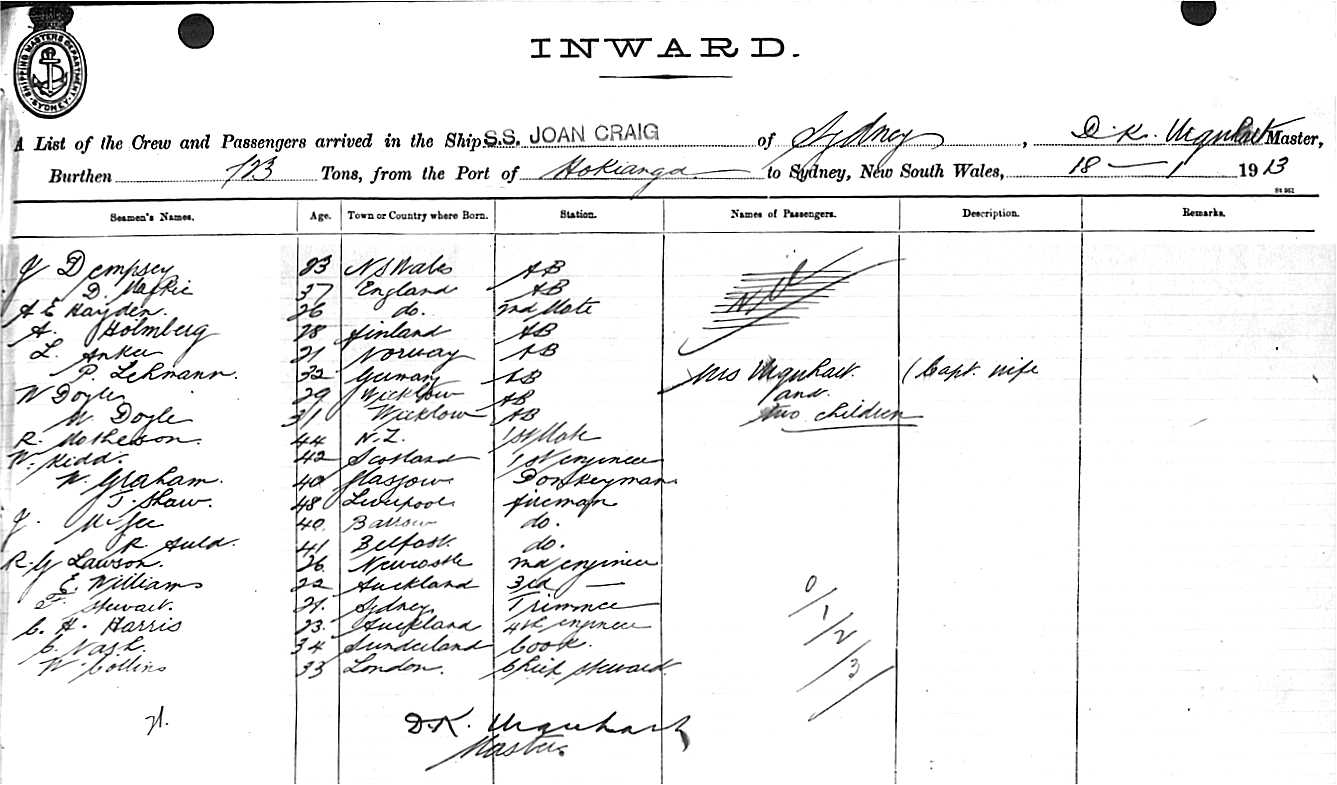 SHIPPING MASTERS DEPARTMENT. SYDNEY
INWARD.
A List of the Crew and Passengers arrived in the Ship S.S. JOAN CRAIG of Sydney, D. K. Urquhart Master,
Burthen 723 Tons, from the Port of Hokianga to Sydney, New South Wales, 18 — 1 1913
Seamen's Names. Age. Town or Country where Born. Station. Names of Passengers. Description. Remarks.
J Dempsey 23 N S Wales AB Nil
D. Mackie 37 England AB
A E Hayden. 26 do. 2nd Mate
A. Holmberg 28 Finland AB
L. Anker 21 Norway AB
P. Lehmann. 32 Germany AB Mrs Urquhart. (Capt. wife
W Doyle 29 Wicklow AB and
M Doyle 31 Wicklow AB two children
R. Matheson. 44 N.Z. 1st Mate
W. Kidd. 42 Scotland 1st engineer
W. Graham. 40 Glasgow Donkeyman
T. Shaw. 48 Liverpool fireman
J. McGee 40 Barrow do.
R. Auld. 41 Belfast do.
R. Lawson. 26 Newcastle 2nd engineer
E. Williams 22 Auckland 3rd — 0/
F. Stewart. 21. Sydney Trimmer 1/
C. H. Harris 23. Auckland 4th engineer 2/
C. Nash. 34 Sunderland Cook.
W. Collins 33 London. Chief steward. /3/
21. D.K. Urquhart
Master.